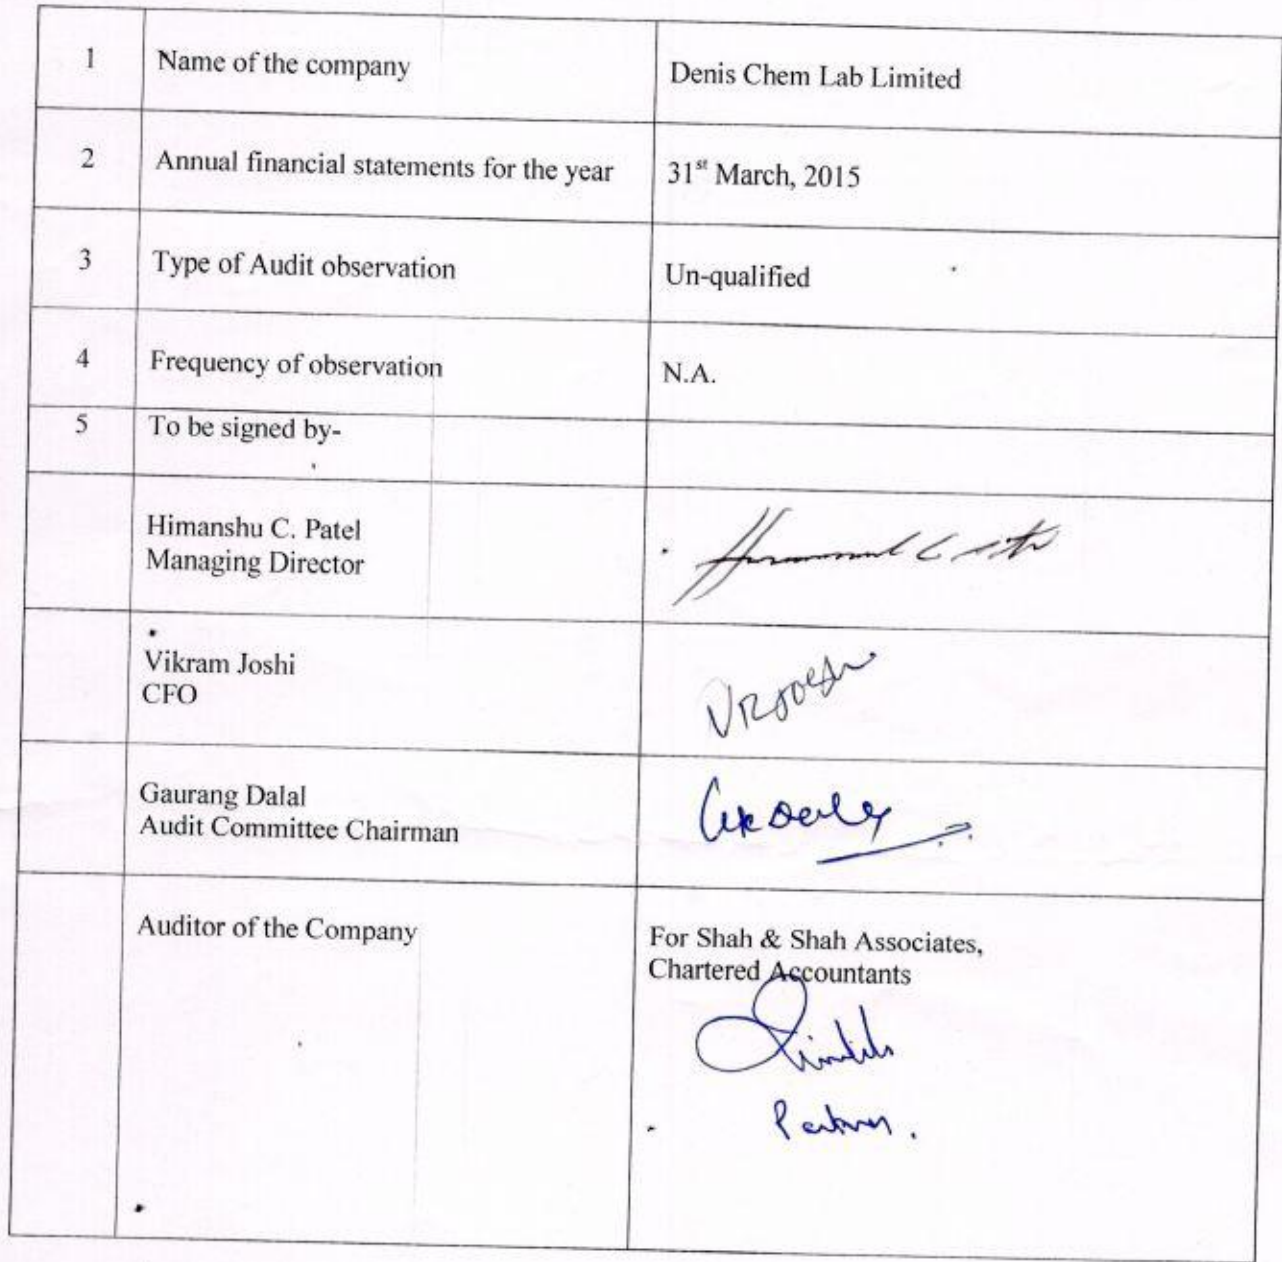 1 Name of the company Denis Chem Lab Limited
2 Annual financial statements for the year 31st March, 2015
3 Type of Audit observation Un-qualified
4 Frequency of observation N.A.
5 To be signed by-
Himanshu C. Patel
Managing Director
Vikram Joshi
CFO
VRJoshi
Gaurang Dalal
Audit Committee Chairman
Auditor of the Company
For Shah & Shah Associates,
Chartered Accountants
Partner.